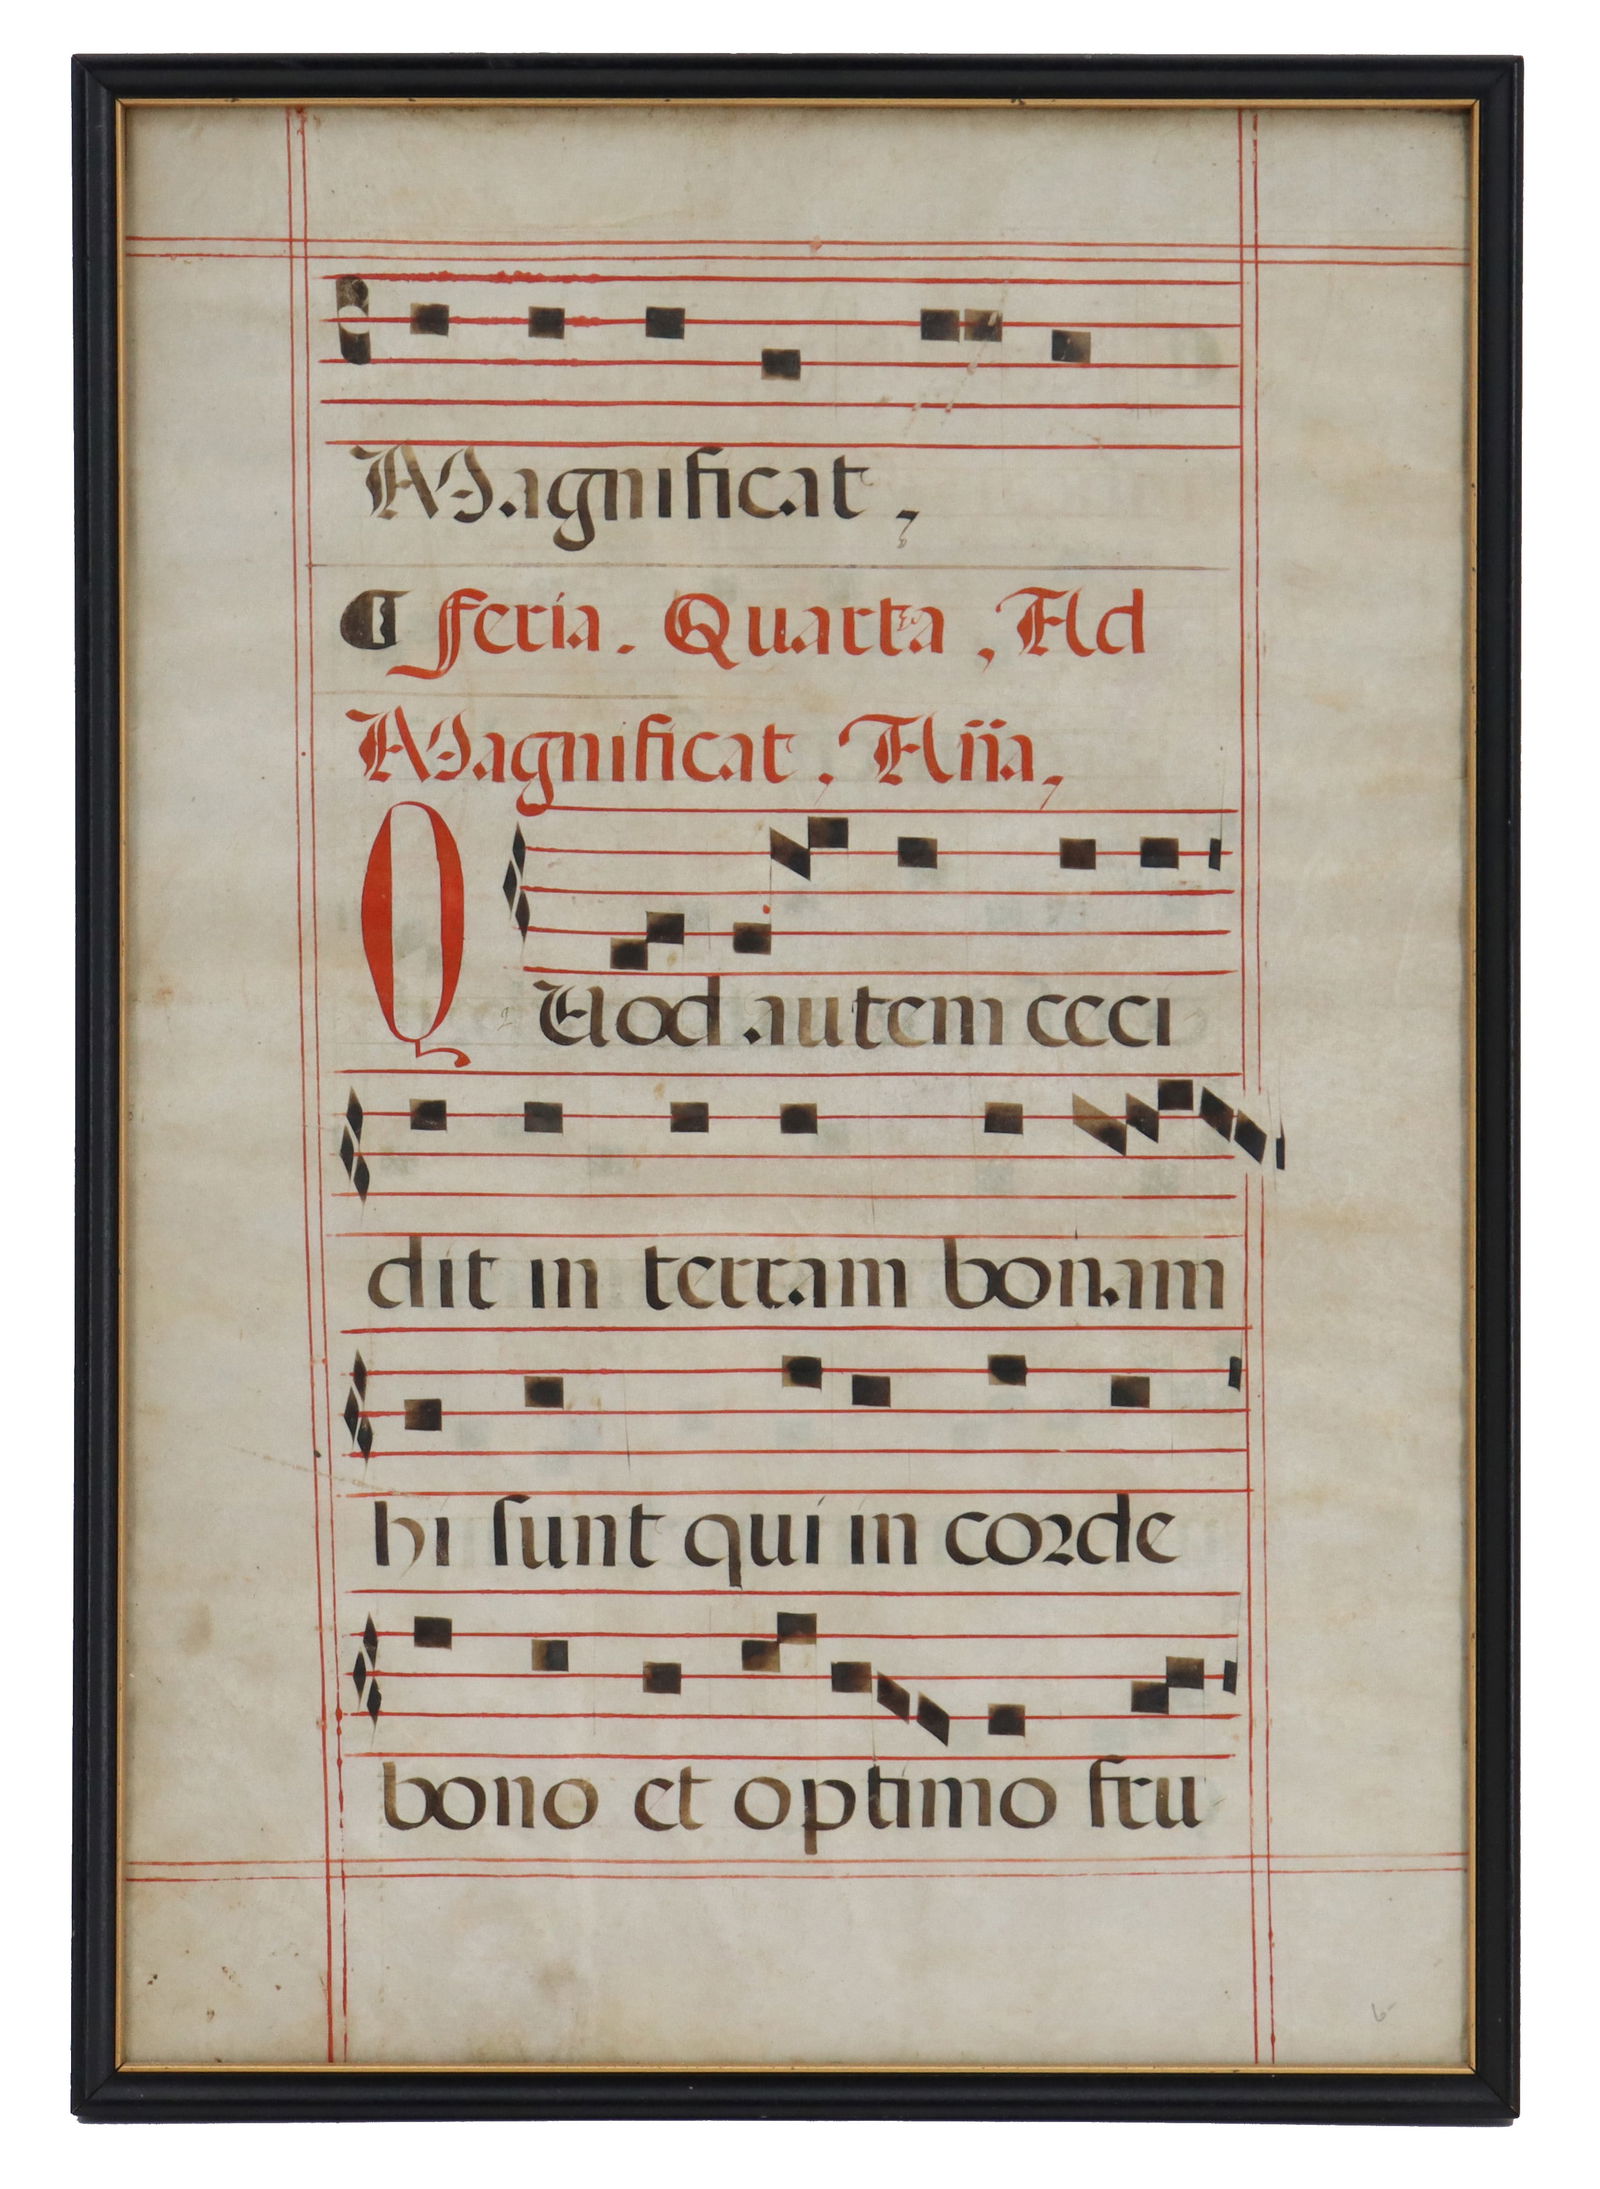 Magnificat,
¶ feria. Quarta, Ad
Magnificat, Añа,
QUod autem ceci
dit in terram bonam
hi sunt qui in corde
bono et optimo fru